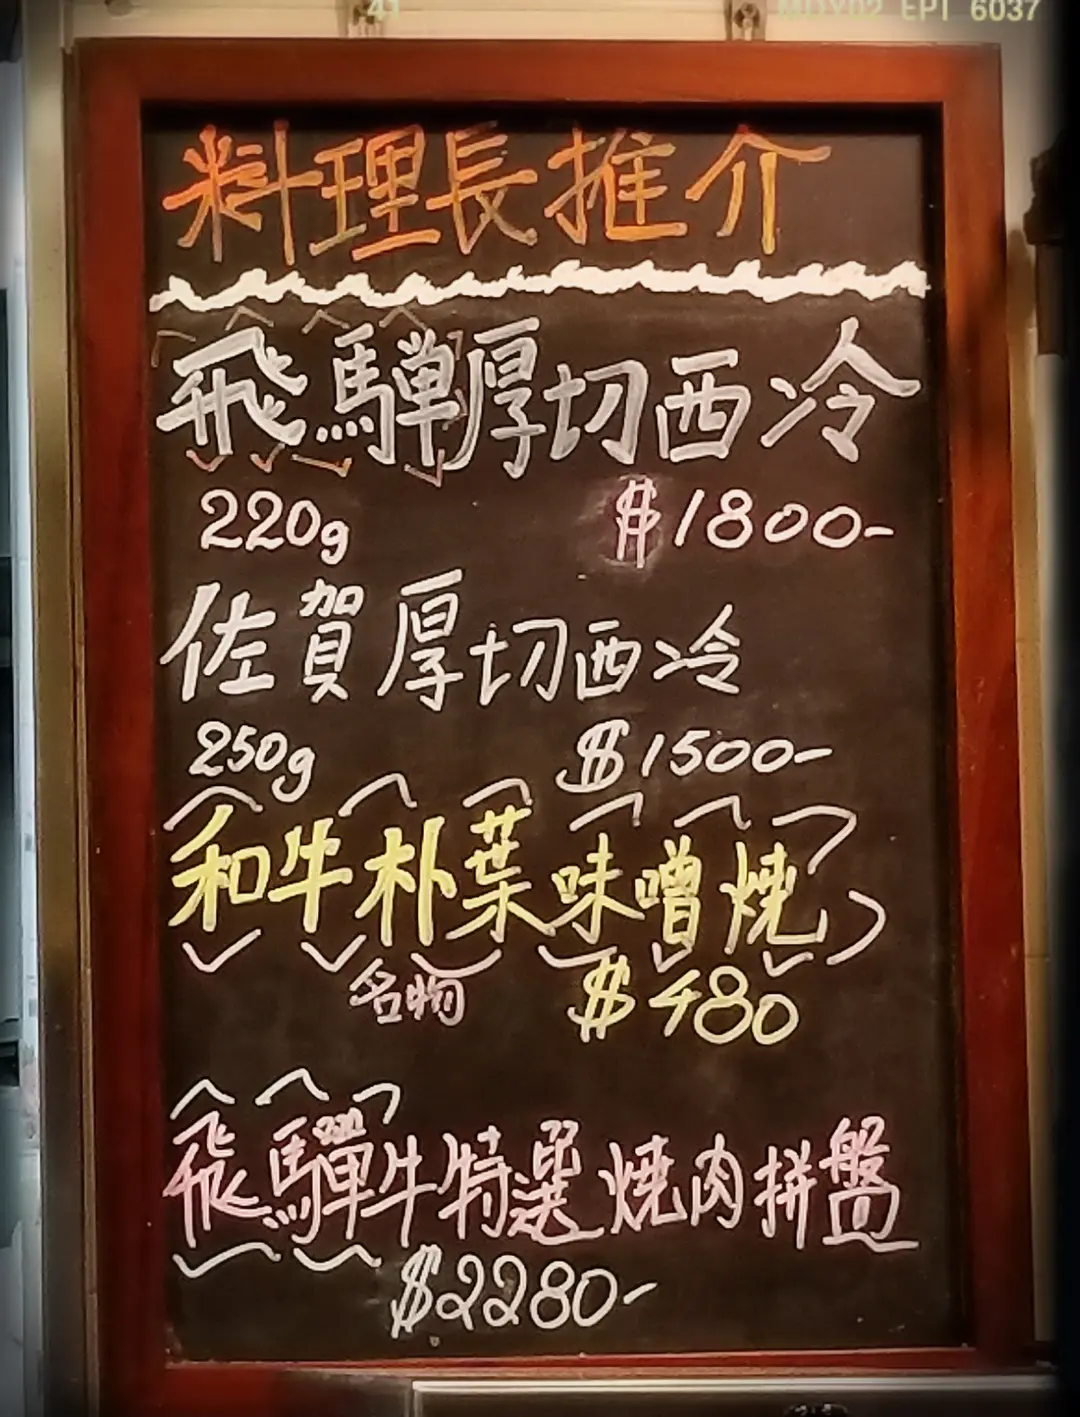 料理長推介
飛驒厚切西冷
220g $1800-
佐賀厚切西冷
250g $1500-
和牛朴葉味噌燒
名物 $480
飛驒牛特選燒肉拼盤
$2280-